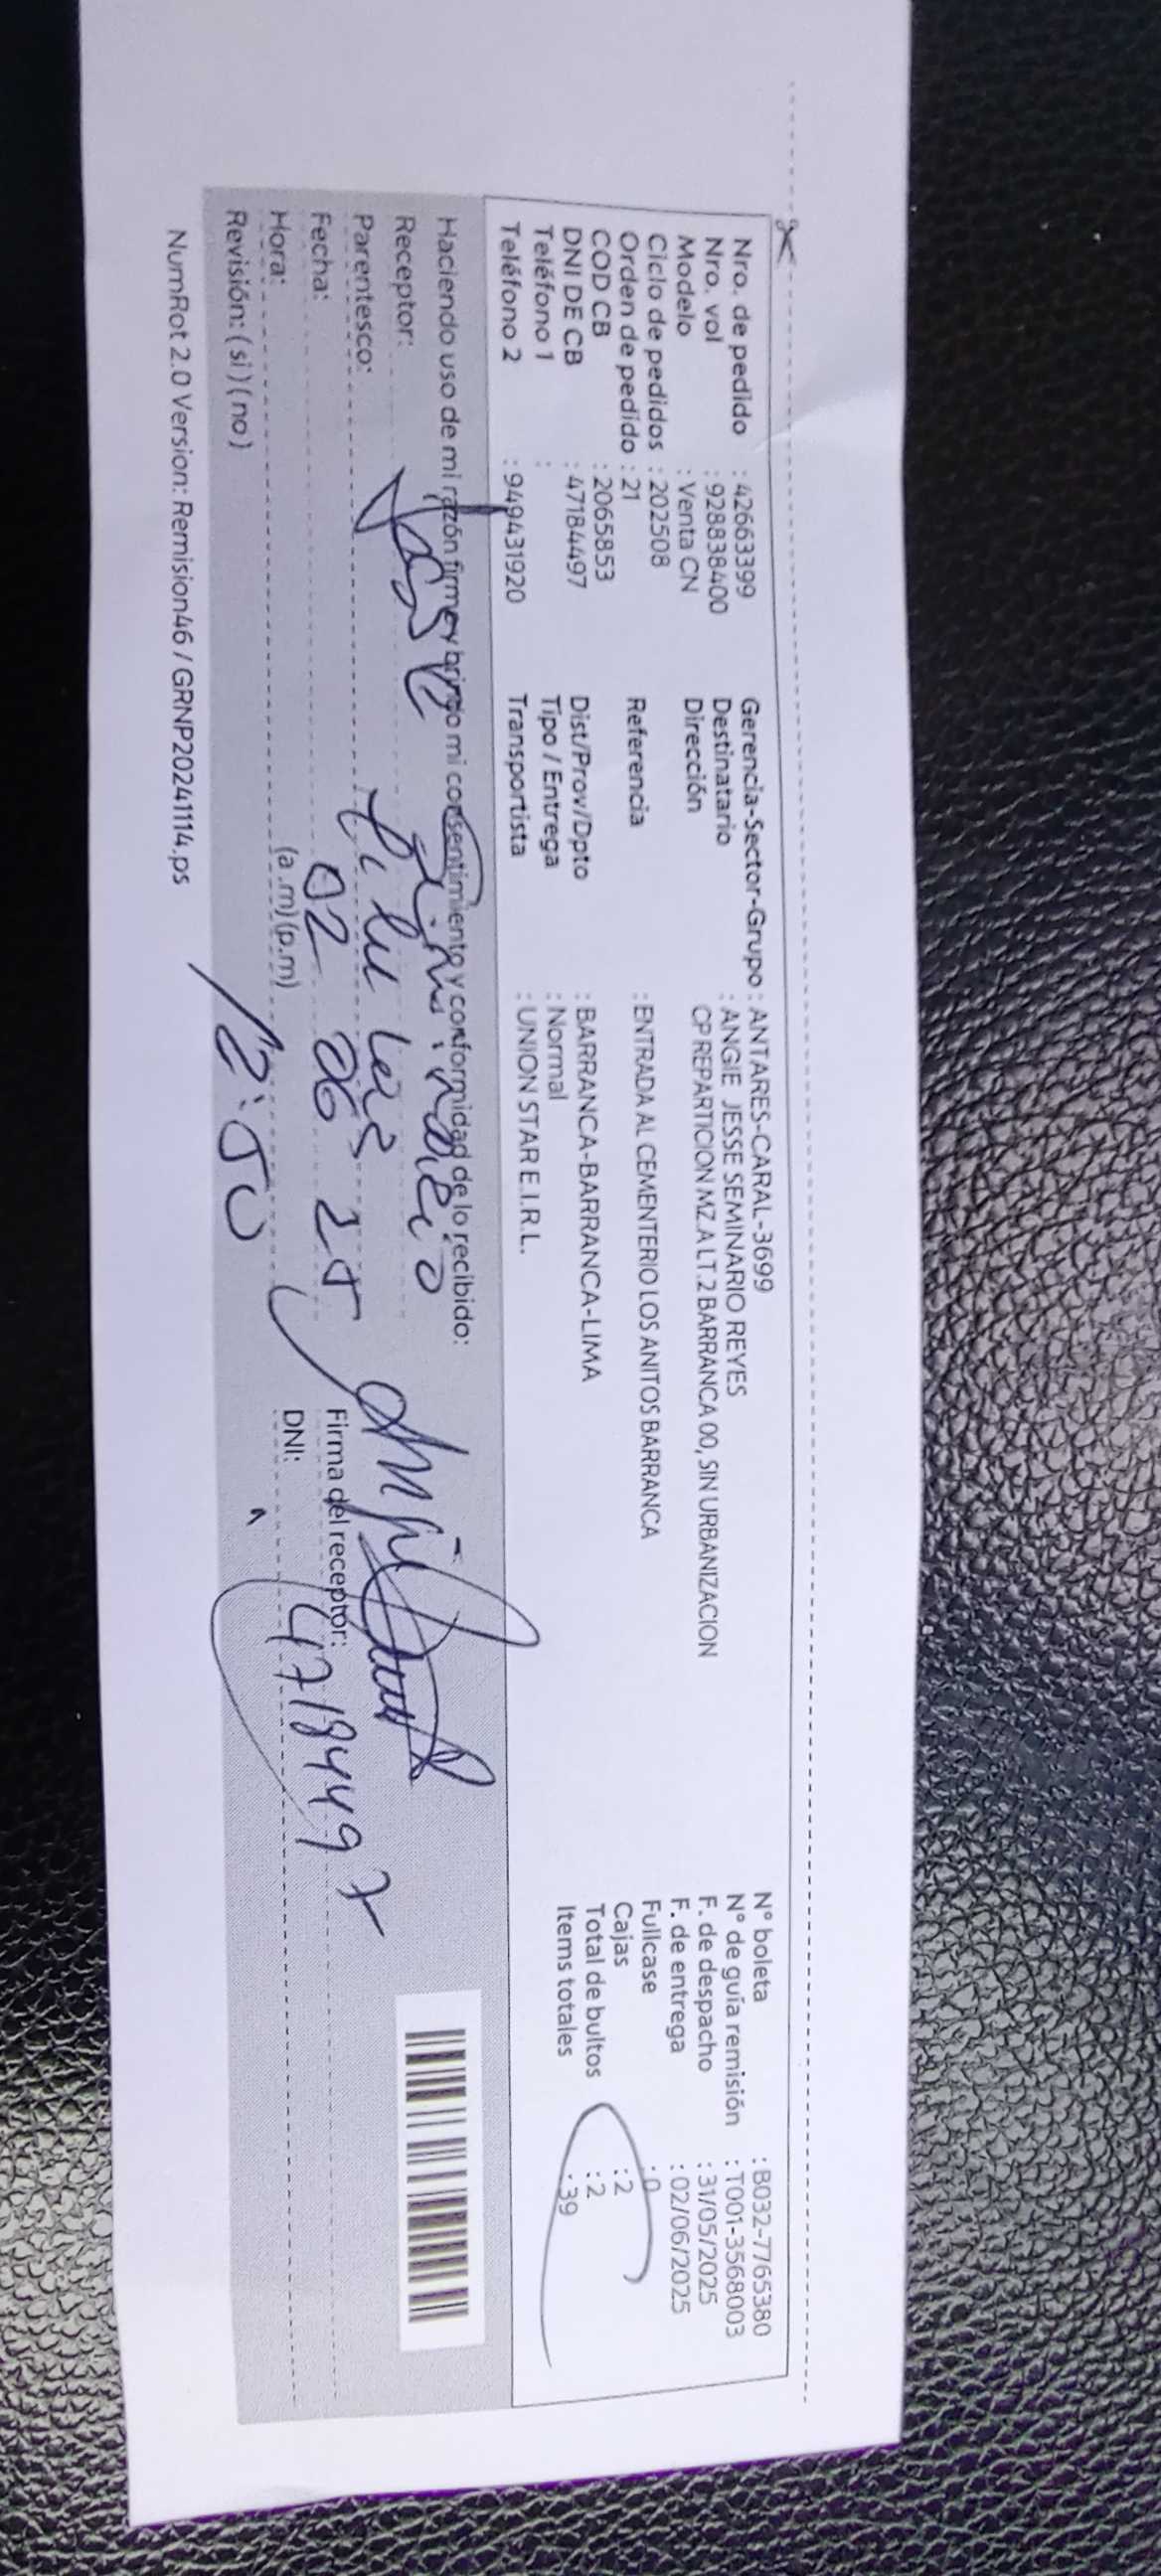 Nro. de pedido : 42663399
Nro. vol : 928838400
Modelo : Venta CN
Ciclo de pedidos : 202508
Orden de pedido : 21
COD CB : 2065853
DNI DE CB : 47184497
Teléfono 1 :
Teléfono 2 : 949431920
Gerencia-Sector-Grupo : ANTARES-CARAL-3699
Destinatario : ANGIE JESSE SEMINARIO REYES
Dirección CP REPARTICION MZ.A LT.2 BARRANCA 00, SIN URBANIZACION
Referencia : ENTRADA AL CEMENTERIO LOS ANITOS BARRANCA
Dist/Prov/Dpto : BARRANCA-BARRANCA-LIMA
Tipo / Entrega : Normal
Transportista : UNION STAR E.I.R.L.
N° boleta : B032-7765380
N° de guía remisión : T001-3568003
F. de despacho : 31/05/2025
F. de entrega : 02/06/2025
Fullcase : 0
Cajas : 2
Total de bultos : 2
Items totales : 39
Haciendo uso de mi razón firme y brindo mi consentimiento y conformidad de lo recibido:
Receptor:
Parentesco: Titular
Fecha: 02 06 25
Hora: 12:50 (a.m) (p.m)
Revisión: ( si ) ( no )
Firma del receptor:
DNI: 47184497
NumRot 2.0 Version: Remision46 / GRNP20241114.ps